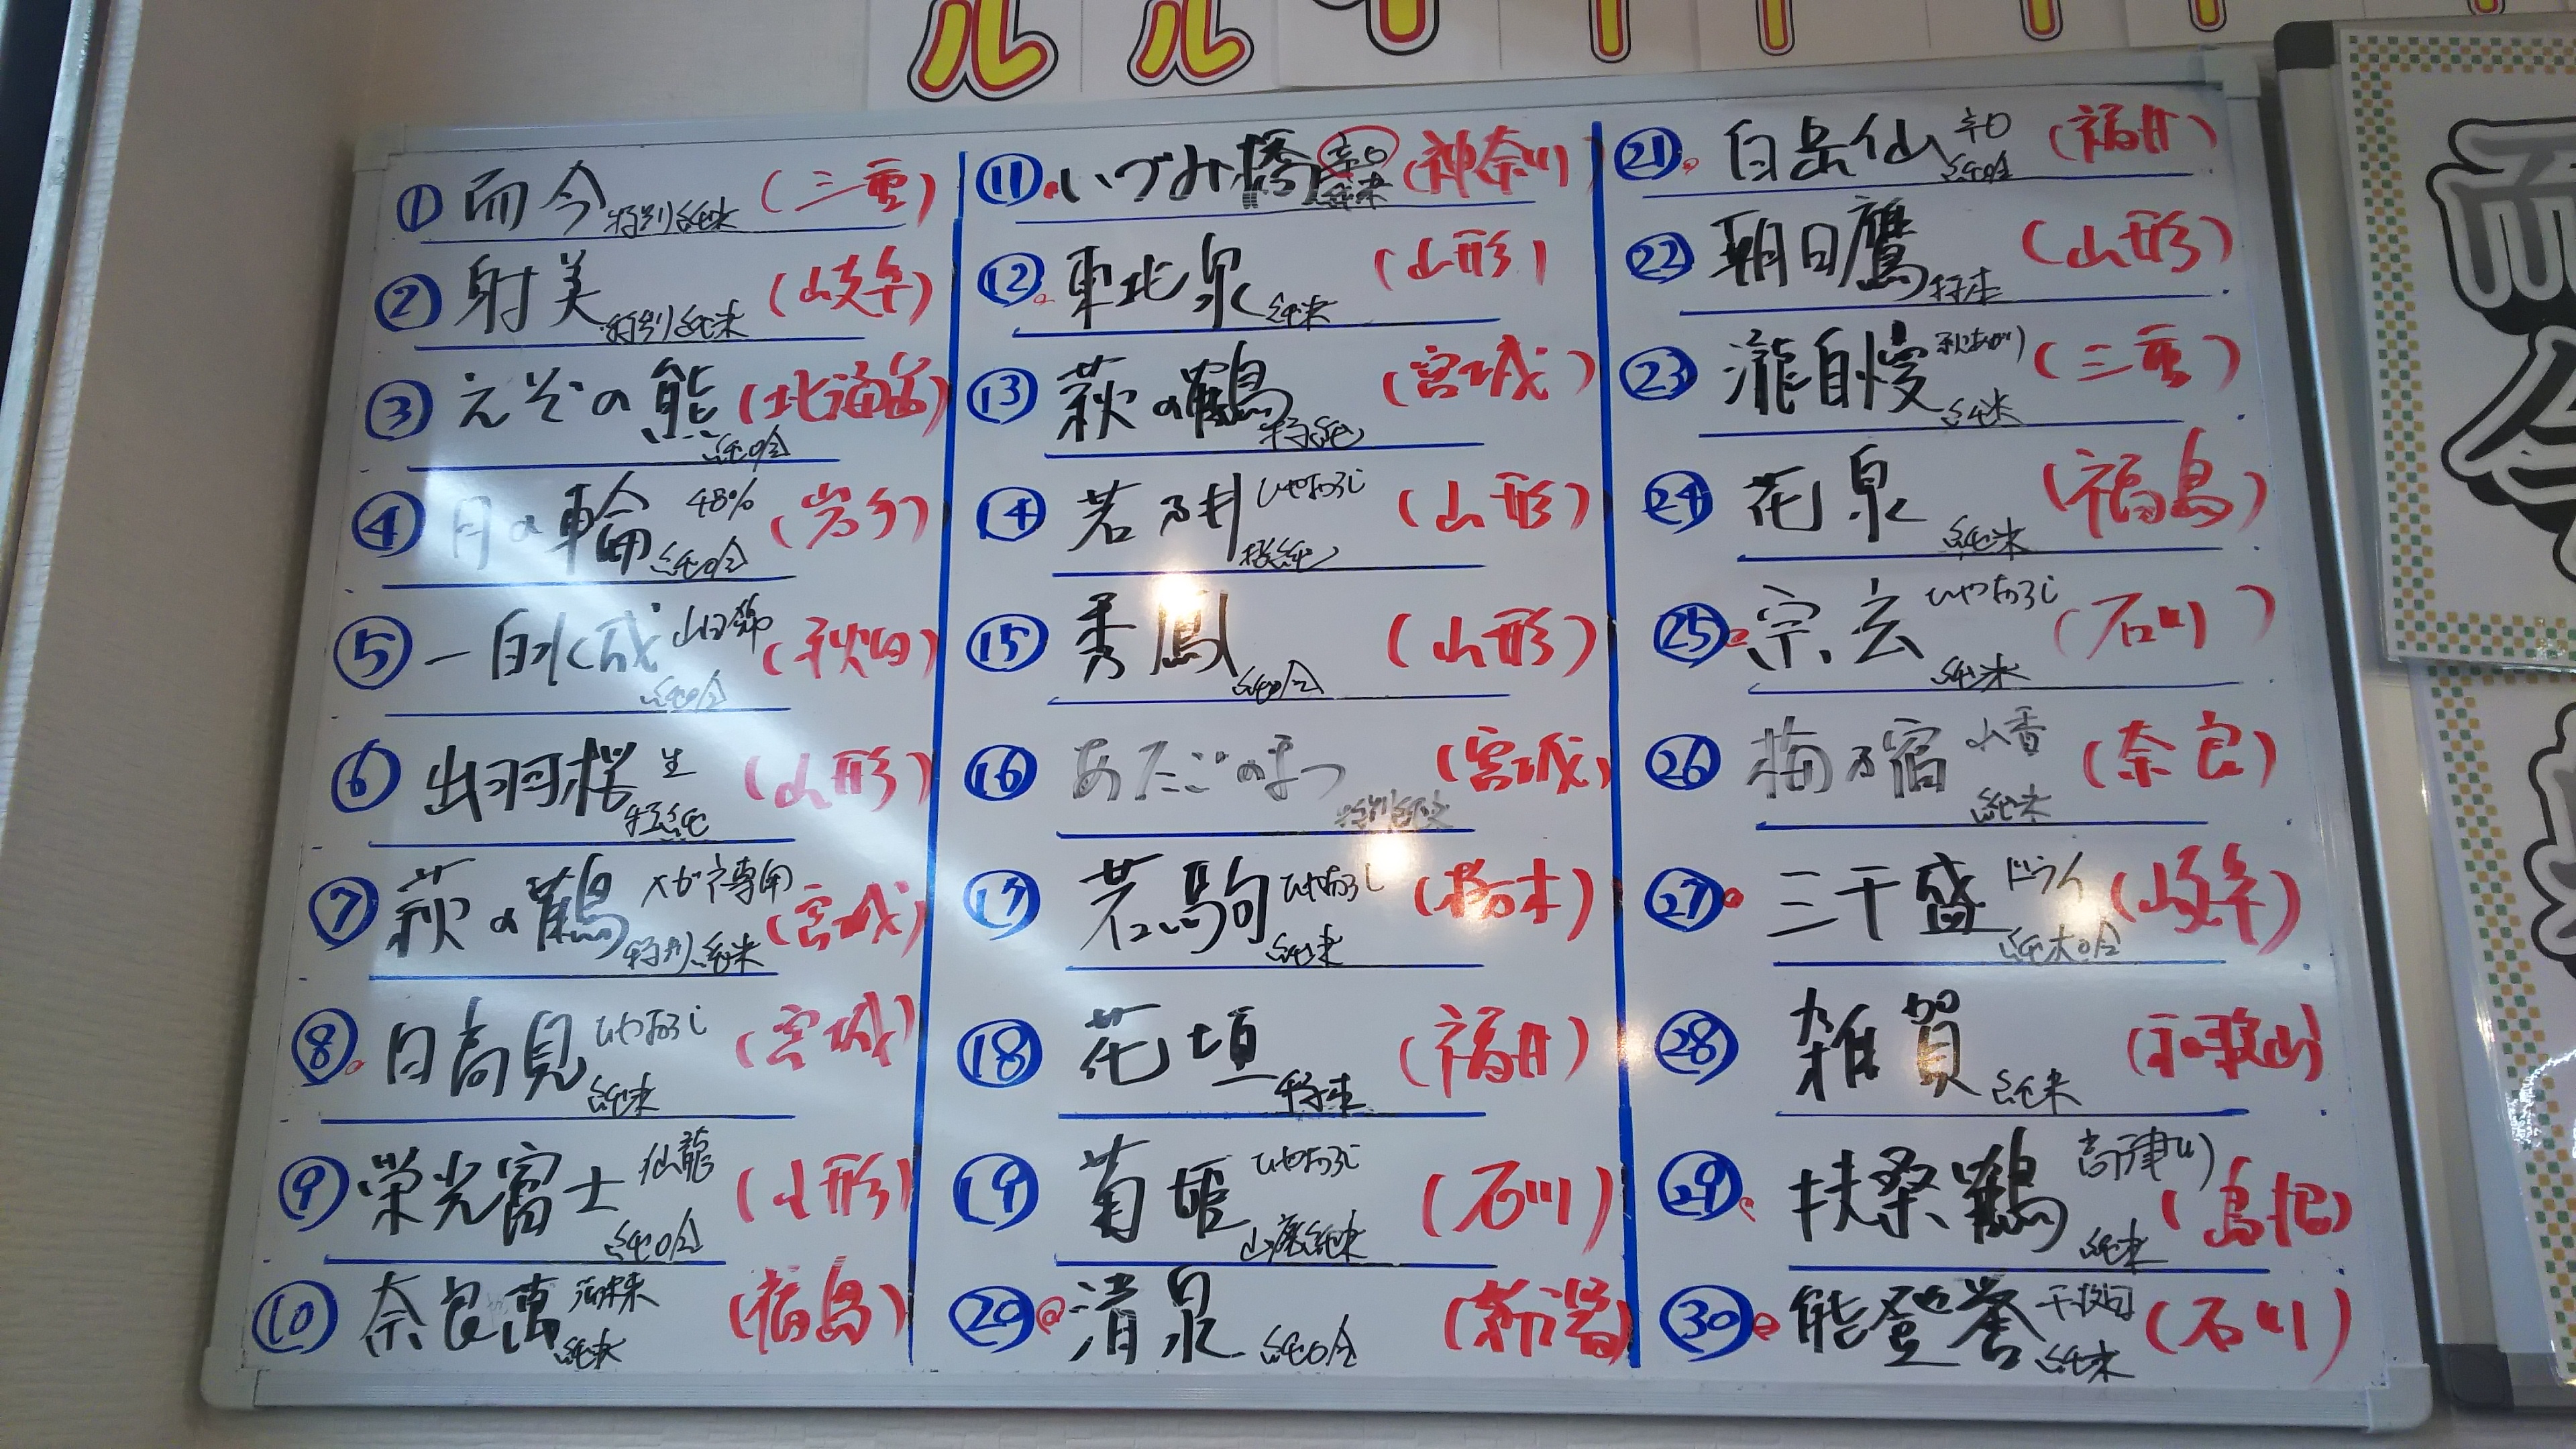 ① 而今 特別純米 (三重)
② 射美 特別純米 (岐阜)
③ えぞの熊 純吟 (北海道)
④ 月の輪 48% 純吟 (岩手)
⑤ 一白水成 山田錦 純吟 (秋田)
⑥ 出羽桜 生 特純 (山形)
⑦ 萩の鶴 メガネ専用 特別純米 (宮城)
⑧ 日高見 ひやおろし 純米 (宮城)
⑨ 栄光冨士 仙龍 純吟 (山形)
⑩ 奈良萬 純米 (福島)
⑪ いづみ橋 辛口 純米 (神奈川)
⑫ 東北泉 純米 (山形)
⑬ 萩の鶴 特純 (宮城)
⑭ 若乃井 ひやおろし 特純 (山形)
⑮ 秀鳳 純吟 (山形)
⑯ あたごのまつ 特別純米 (宮城)
⑰ 若駒 ひやおろし 純米 (栃木)
⑱ 花垣 特本 (福井)
⑲ 菊姫 ひやおろし 山廃純米 (石川)
⑳ 清泉 純吟 (新潟)
㉑ 白岳仙 辛口 純吟 (福井)
㉒ 朝日鷹 特本 (山形)
㉓ 瀧自慢 秋あがり 純米 (三重)
㉔ 花泉 純米 (福島)
㉕ 宗玄 ひやおろし 純米 (石川)
㉖ 梅乃宿 山香 純米 (奈良)
㉗ 三千盛 ドライ 純大吟 (岐阜)
㉘ 雑賀 純米 (和歌山)
㉙ 扶桑鶴 高津川 純米 (島根)
㉚ 能登誉 千枚田 純米 (石川)
而今